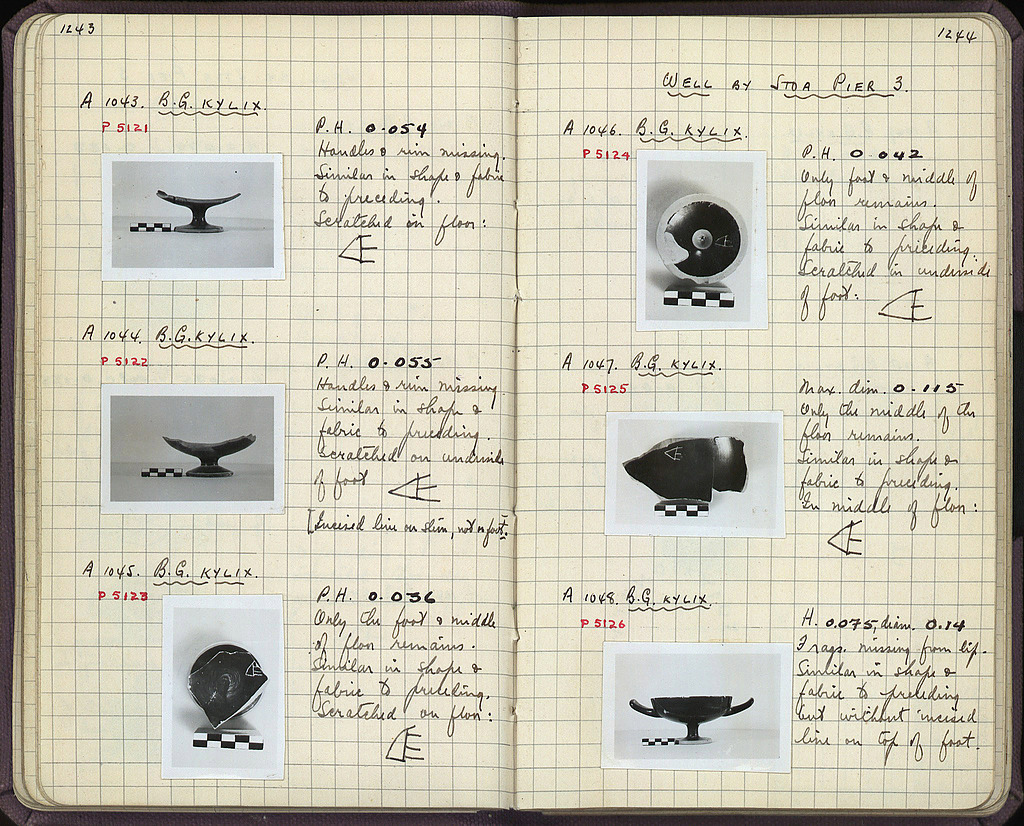 1243
A 1043. B.G. KYLIX.
P 5121
P.H. 0.054
Handles & rim missing.
Similar in shape & fabric
to preceding.
Scratched on floor:
A 1044. B.G. KYLIX.
P 5122
P.H. 0.055
Handles & rim missing
Similar in shape &
fabric to preceding.
Scratched on underside
of foot
[Incised line on stem, not on foot].
A 1045. B.G. KYLIX.
P 5123
P.H. 0.036
Only the foot & middle
of floor remains.
Similar in shape &
fabric to preceding.
Scratched on floor:
1244
WELL BY STOA PIER 3.
A 1046. B.G. KYLIX.
P 5124
P.H. 0.042
Only foot & middle of
floor remains.
Similar in shape &
fabric to preceding.
Scratched in underside
of foot:
A 1047. B.G. KYLIX.
P 5125
Max. dim. 0.115
Only the middle of the
floor remains.
Similar in shape &
fabric to preceding.
In middle of floor:
A 1048. B.G. KYLIX.
P 5126
H. 0.075, diam. 0.14
Frags. missing from lip.
Similar in shape &
fabric to preceding
but without incised
line on top of foot.